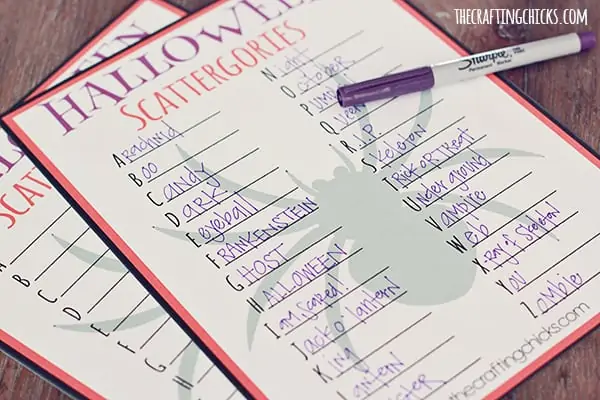 THECRAFTINGCHICKS.COM
HALLOWEEN
SCATTERGORIES
Arachnid
Boo
Candy
DARK
Eyeball
FRANKENSTEIN
GHOST
HALLOWEEN
I am scared!
Jack o' lantern
King
Lantern
Night
October
Queen
R.I.P.
Skeleton
Trick OR Treat
Underground
Vampire
Web
Xray of skeleton
You
Zombies
thecraftingchicks.com
Sharpie
Permanent Marker
EEN
SCA
A
B
C
D
E
F
G
H